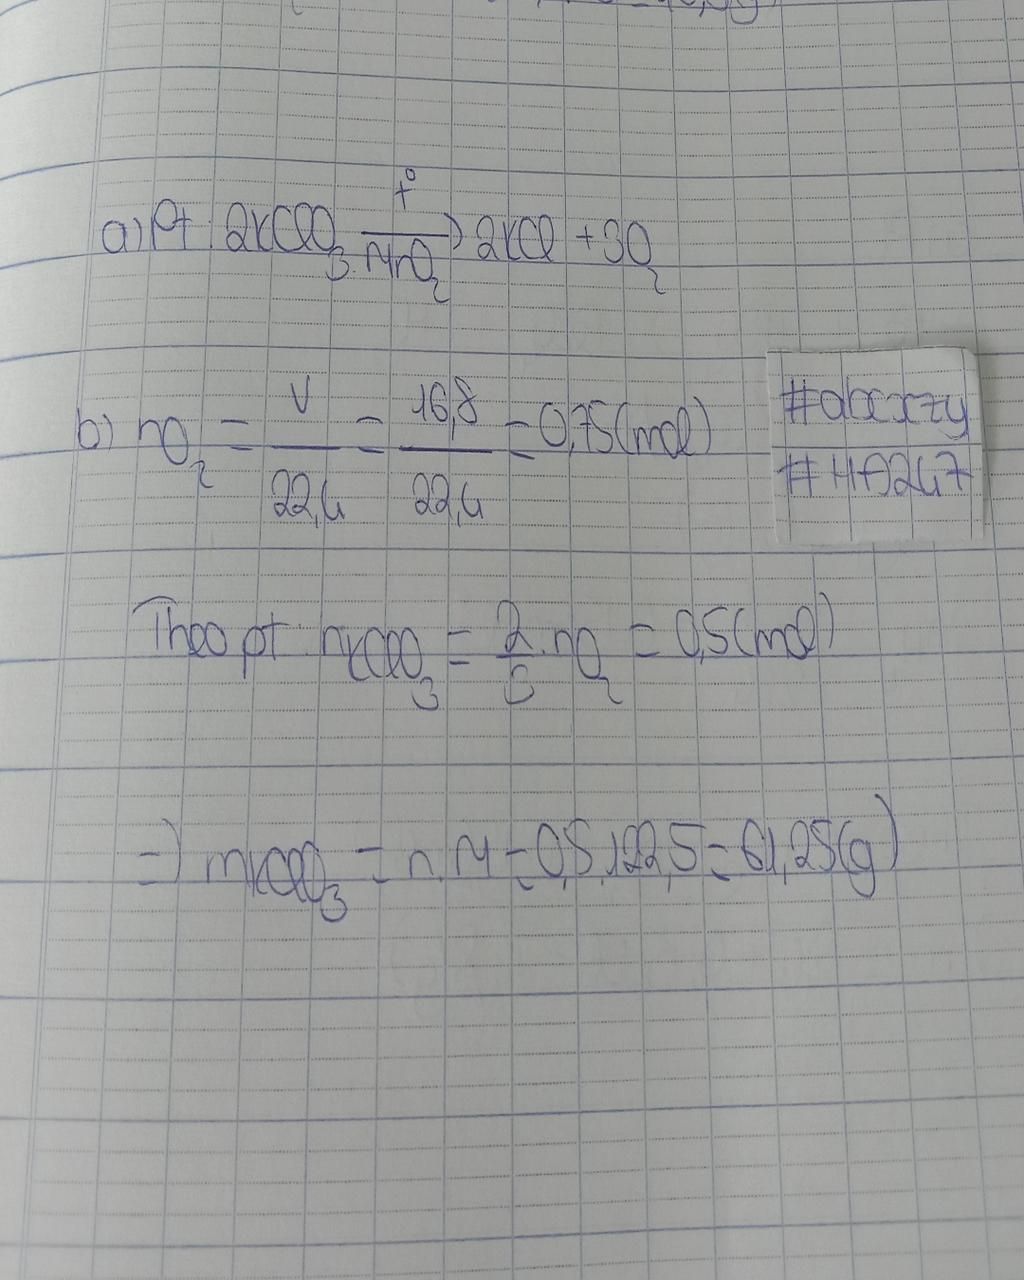 a) Pt 2KClO₃ t° / MnO₂ → 2KCl + 3O₂
b) nO₂ = V/22,4 = 16,8/22,4 = 0,75(mol)
#abcxzy
#HA247
Theo pt: nKClO₃ = 2/3 . nO₂ = 0,5(mol)
=) mKClO₃ = n.M = 0,5.122,5 = 61,25(g)